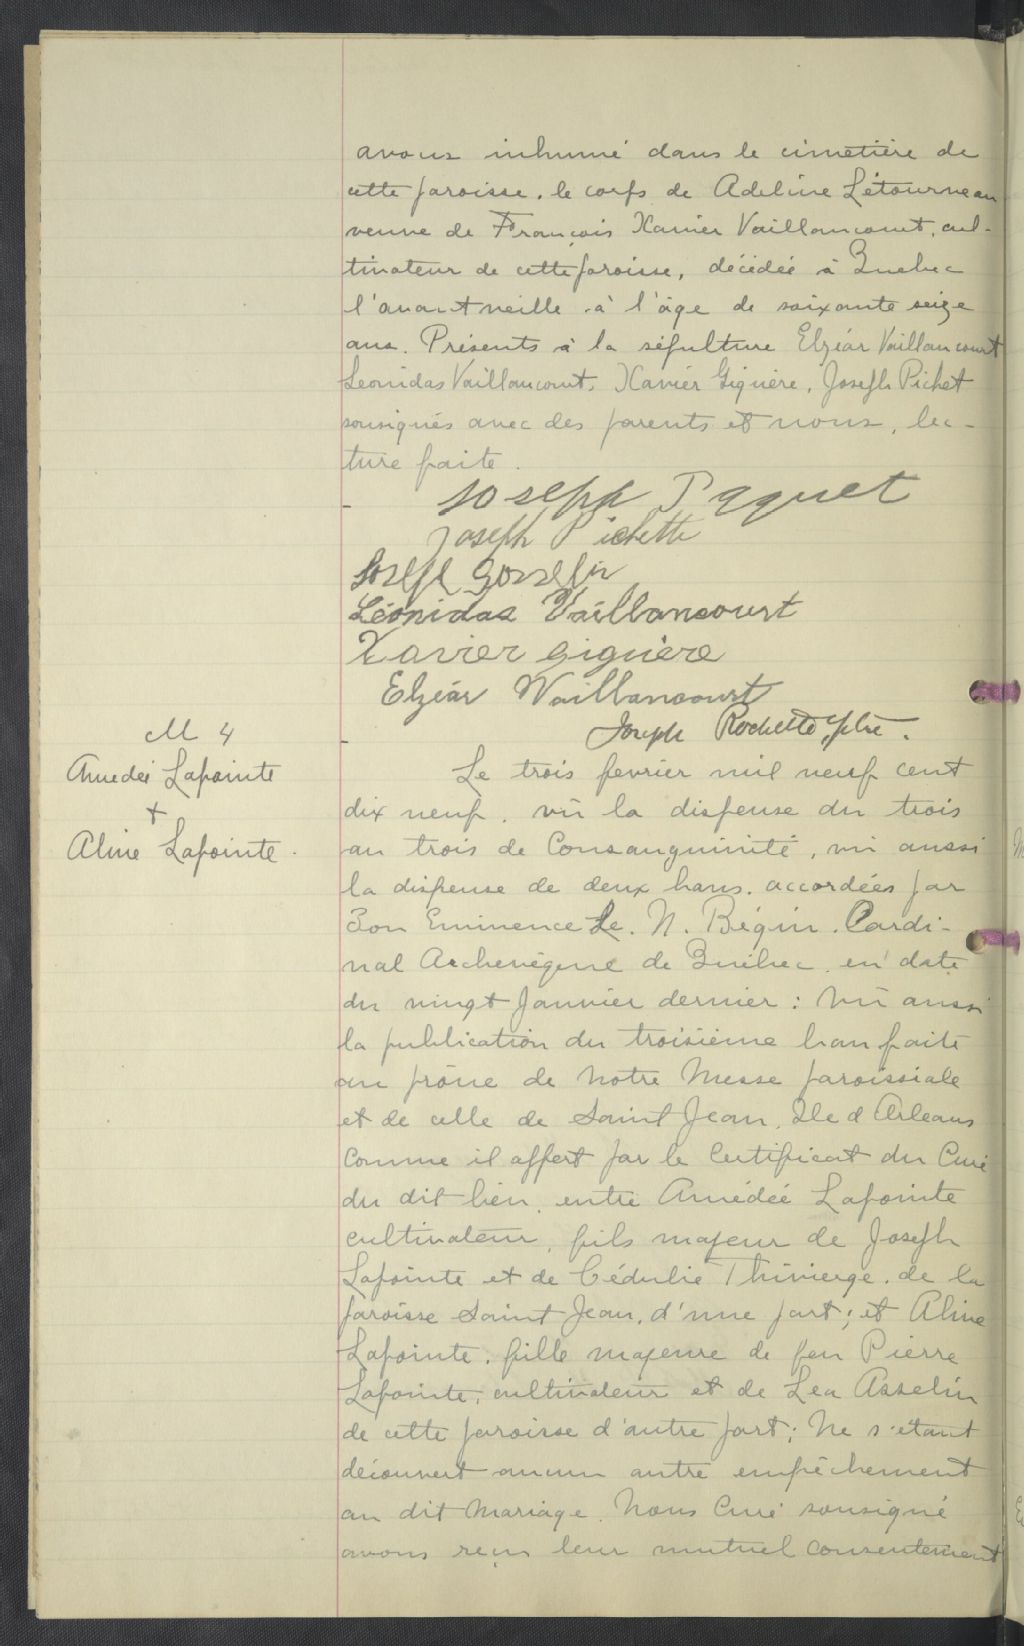 avons inhumé dans le cimetière de
cette paroisse, le corps de Adeline Létourneau
veuve de François Xavier Vaillancourt, cul-
tivateur de cette paroisse, décédée à Québec
l'avant veille à l'âge de soixante seize
ans. Présents à la sépulture Elzéar Vaillancourt
Leonidas Vaillancourt, Xavier Giguère, Joseph Pichet
sousignés avec des parents et nous, lec-
ture faite.
Joseph Paquet
Joseph Pichette
Josefe Gosselin
Léonidas Vaillancourt
Xavier Giguère
Elzéar Vaillancourt
Joseph Rochette, ptre.
M 4
Amedée Lapointe
+
Aline Lapointe.
Le trois fevrier mil neuf cent
dix neuf, vû la dispense du trois
au trois de Consanguinité, vû aussi
la dispense de deux bans, accordées par
Son Eminence Le. N. Bégin, Cardi-
nal Archevêque de Québec, en date
du vingt Janvier dernier: Vû aussi
la publication du troisième ban faite
au prône de Notre Messe paroissiale
et de celle de Saint Jean, Ile d'Orleans
Comme il appert par le Certificat du Curé
du dit lieu, entre Amédée Lapointe
cultivateur, fils majeur de Joseph
Lapointe et de Cédulie Thivierge, de la
paroisse Saint Jean, d'une part; et Aline
Lapointe, fille majeure de feu Pierre
Lapointe, cultivateur et de Lea Asselin
de cette paroisse d'autre part; Ne s'étant
découvert aucun autre empêchement
au dit Mariage, Nous Curé sousigné
avons reçu leur mutuel Consentement